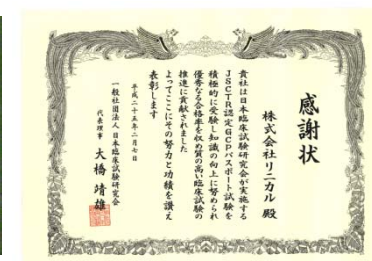 感謝状
株式会社リニカル 殿
貴社は日本臨床試験研究会が実施する
JSCTR認定GCPパスポート試験を
積極的に受験し知識の向上に努められ
優秀なる合格率を収め質の高い臨床試験の
推進に貢献されました
よってここにその努力と功績を讃え
表彰します
平成二十五年二月七日
一般社団法人日本臨床試験研究会
代表理事 大橋靖雄